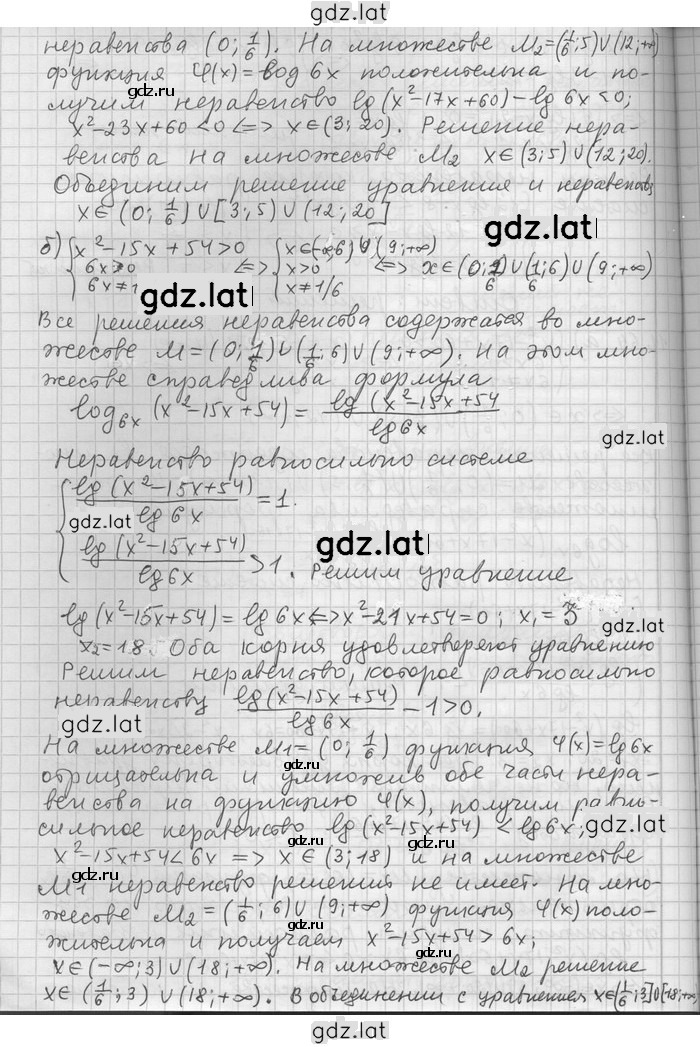 gdz.lat
неравенства (0; 1/6). На множестве M₂=(1/6;5)∪(12;+∞)
функция φ(x)=log 6x положительна и по-
gdz.lat
лучим неравенство lg(x²-17x+60)-lg 6x<0;
x²-23x+60<0 <=> x∈(3;20). Решение нера-
венства на множестве M₂ x∈(3;5)∪(12;20).
Объединим решение уравнения и неравенства
x∈(0; 1/6)∪[3;5)∪(12;20]
б) { x²-15x+54>0 { x∈(-∞;6)∪(9;+∞)
6x>0 <=> x>0 <=> x∈(0;1/6)∪(1/6;6)∪(9;+∞)
6x≠1 x≠1/6
gdz.lat
gdz.lat
Все решения неравенства содержатся во мно-
жестве M=(0;1/6)∪(1/6;6)∪(9;+∞). На этом мно-
жестве справедлива формула
log₆ₓ(x²-15x+54)= lg(x²-15x+54 / lg6x
gdz.lat
Неравенство равносильно системе
{ lg(x²-15x+54) / lg6x =1.
gdz.lat
lg(x²-15x+54) / lg6x >1. Решим уравнение
gdz.lat
lg(x²-15x+54)=lg6x <=> x²-21x+54=0; x₁=3
gdz.lat
x₂=18. Оба корня удовлетворяют уравнению
Решим неравенство, которое равносильно
неравенству lg(x²-15x+54) / lg6x -1>0.
gdz.lat
На множестве M₁=(0; 1/6) функция φ(x)=lg6x
gdz.lat
отрицательна и умножив обе части нера-
венства на функцию φ(x), получим равно-
сильное неравенство lg(x²-15x+54)<lg6x;
gdz.lat
gdz.lat
x²-15x+54<6x => x∈(3;18) и на множестве
M₁ неравенство решений не имеет. На мно-
жестве M₂=(1/6;6)∪(9;+∞) функция φ(x) поло-
gdz.lat
жительна и получаем x²-15x+54>6x;
x∈(-∞;3)∪(18;+∞). На множестве M₂ решение
gdz.lat
gdz.lat
x∈(1/6;3)∪(18;+∞). В объединении с уравнением x∈(1/6;3]∪[18;+∞)
gdz.lat